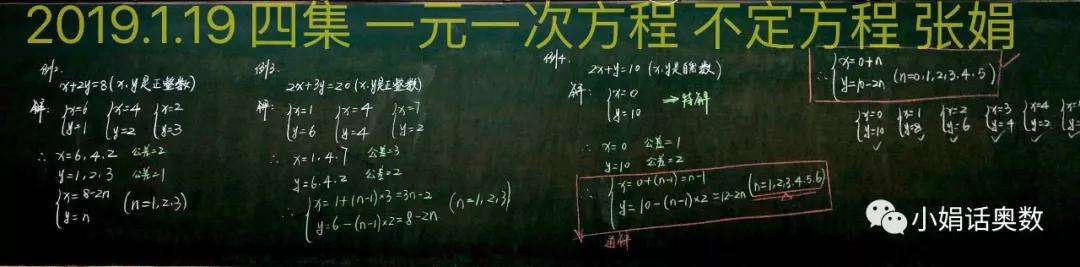 2019.1.19 四集 一元一次方程 不定方程 张娟
例2.
x+2y=8(x,y是正整数)
解: {x=6 {x=4 {x=2
y=1 y=2 y=3
∴ x=6,4,2 公差=2
y=1,2,3 公差=1
{x=8-2n
y=n (n=1,2,3)
例3.
2x+3y=20(x,y是正整数)
解: {x=1 {x=4 {x=7
y=6 y=4 y=2
∴ x=1,4,7 公差=3
y=6,4,2 公差=2
∴ {x=1+(n-1)×3=3n-2
y=6-(n-1)×2=8-2n (n=1,2,3)
例4.
2x+y=10(x,y是自然数)
解: {x=0
y=10
→特解
∴ x=0 公差=1
y=10 公差=2
∴ {x=0+(n-1)=n-1
y=10-(n-1)×2=12-2n (n=1,2,3,4,5,6)
通解
∴ {x=0+n
y=10-2n (n=0,1,2,3,4,5)
{x=0 {x=1 {x=2 {x=3 {x=4
y=10 y=8 y=6 y=4 y=2
小娟话奥数